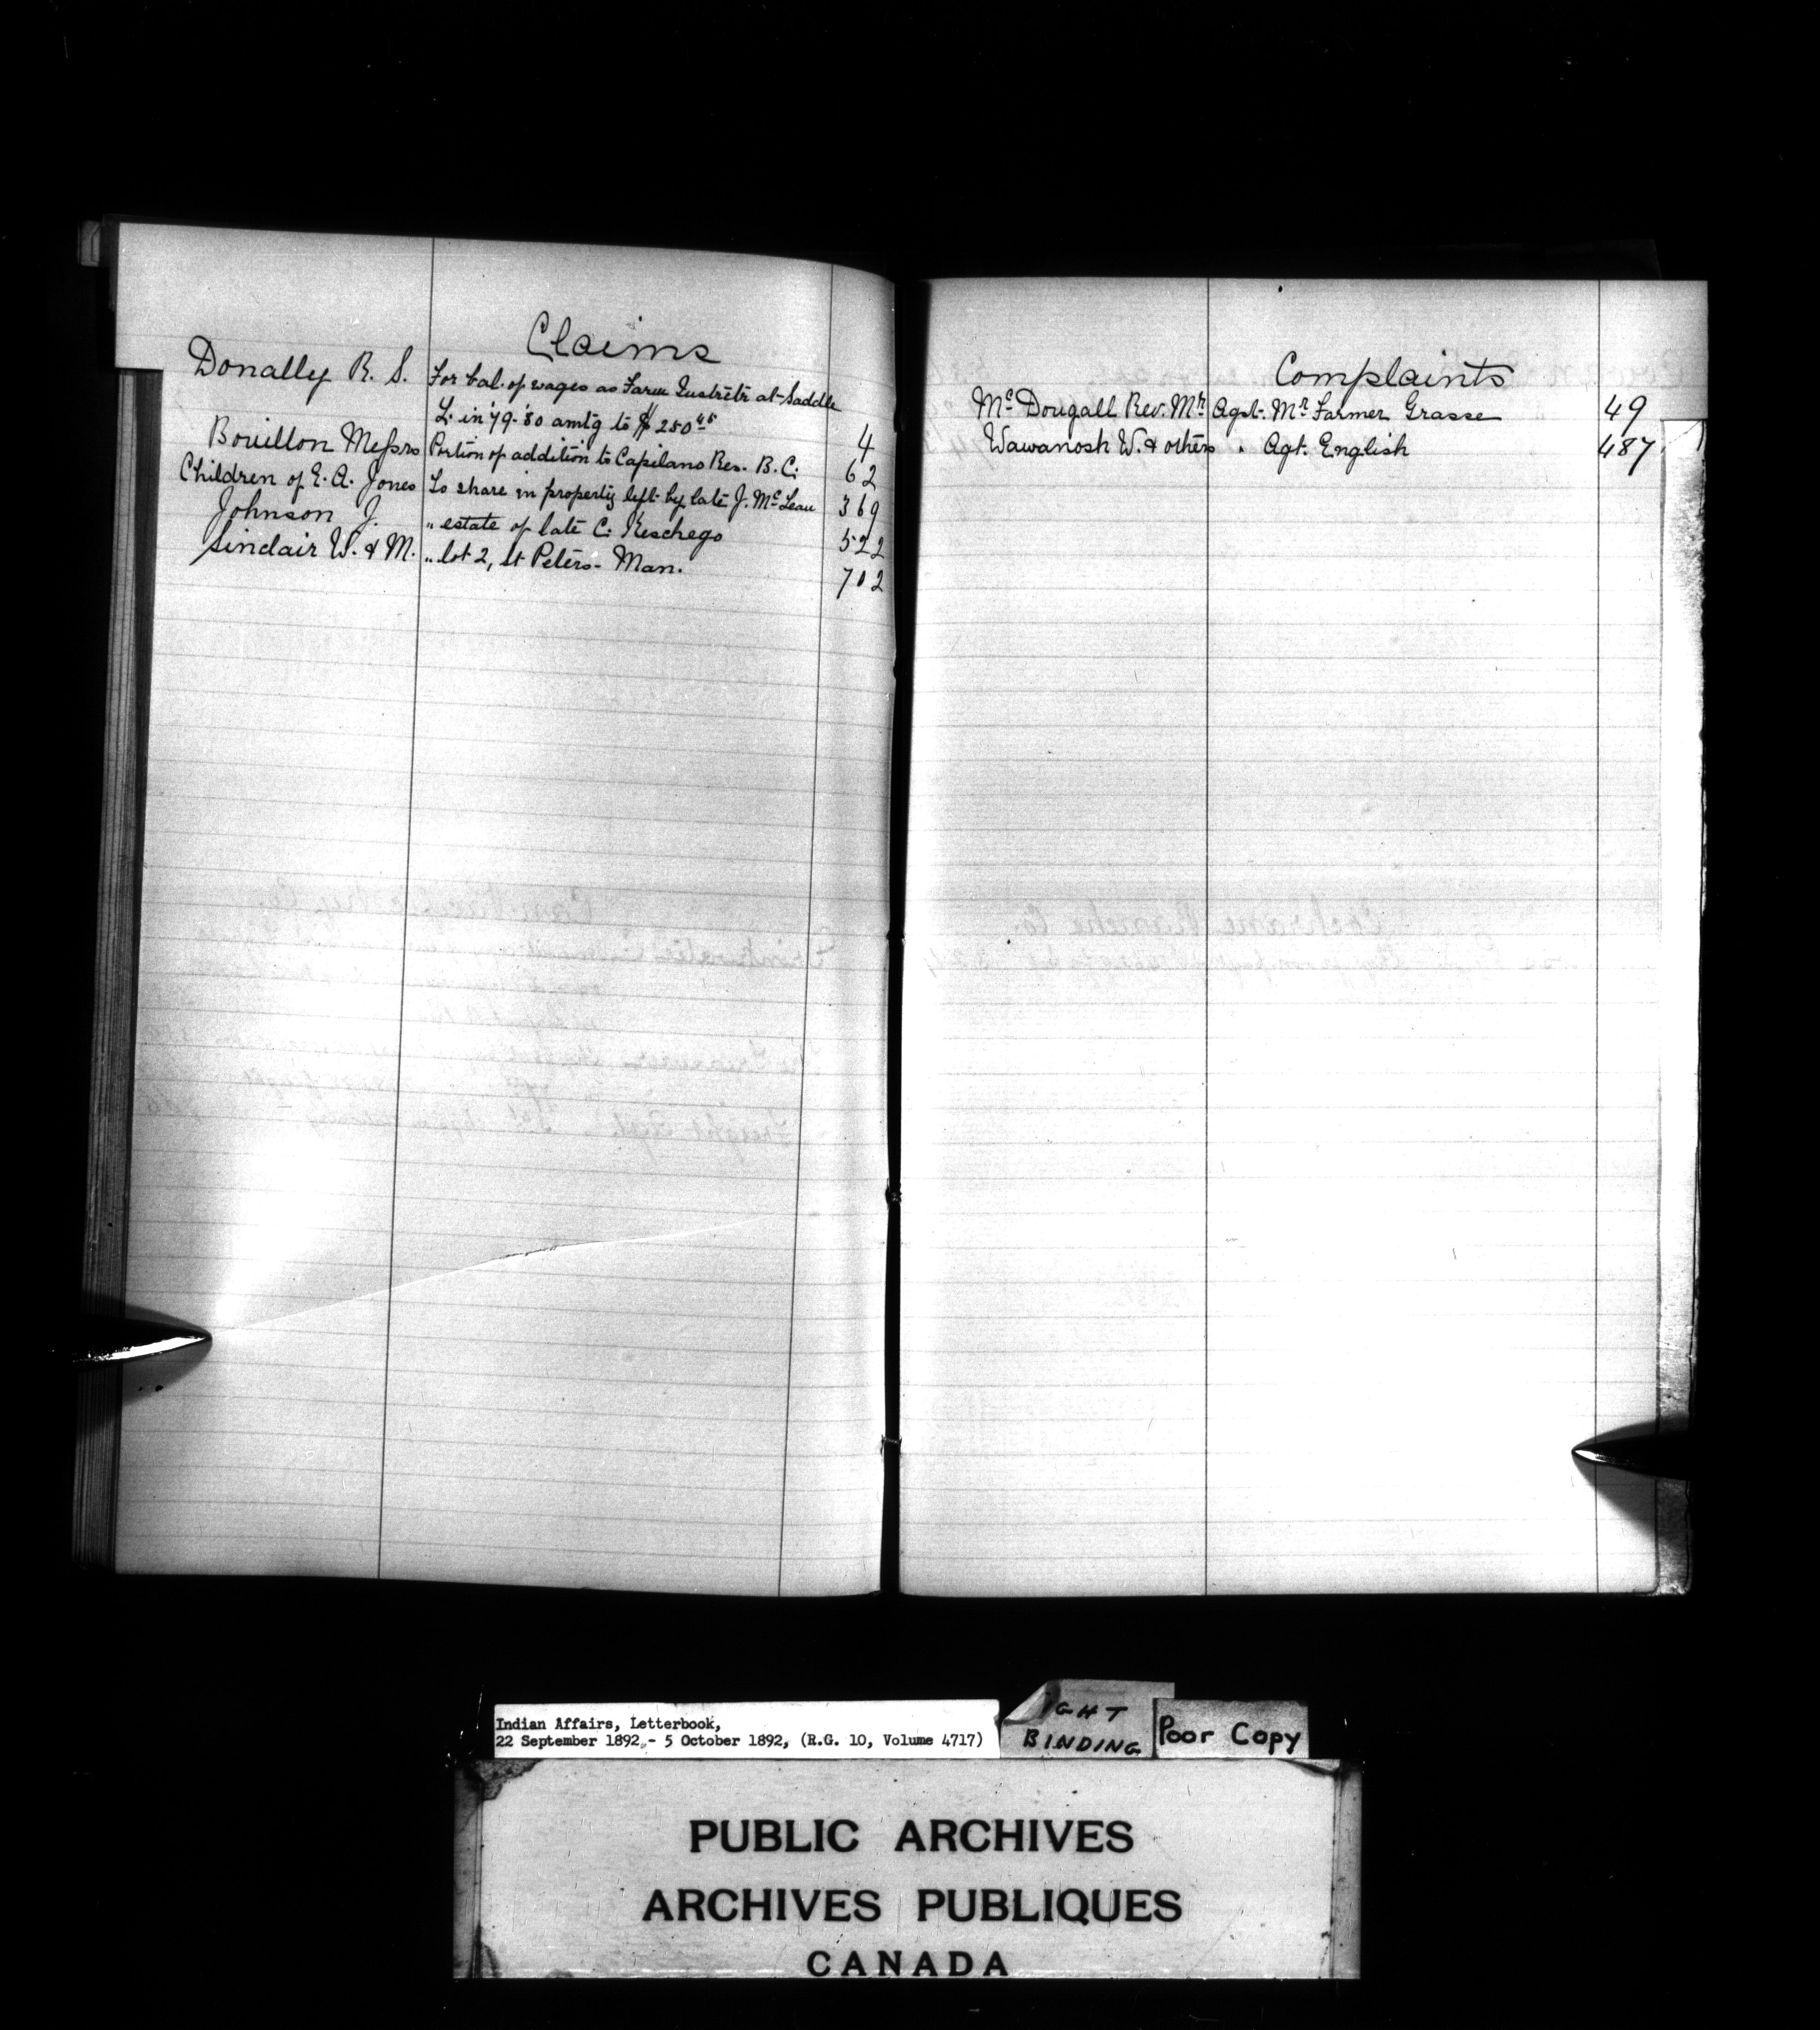 Claims
Donally R. S. For bal. of wages as Farm Instrctr at Saddle
L. in '79-'80 amtg to $280.45 4
Bouillon Messrs Portion of addition to Capilano Res. B.C. 62
Children of E. A. Jones To share in property left by late J. McLean 369
Johnson J. " estate of late C. Keschego 522
Sinclair W. & M. " lot 2, St Peters- Man. 702
Complaints
McDougall Rev. Mr Agst. Mr Farmer Grasse 49
Wawanosh W. & others " Agt. English 487
Indian Affairs, Letterbook,
22 September 1892 - 5 October 1892, (R.G. 10, Volume 4717)
IGHT
BINDING
Poor Copy
PUBLIC ARCHIVES
ARCHIVES PUBLIQUES
CANADA